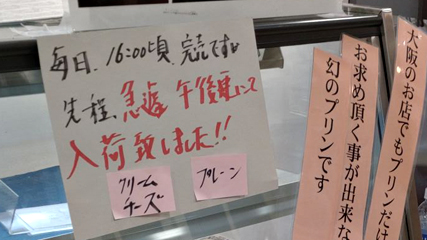 毎日、16:00頃、完売です。
先程、急遽 午後便にて
入荷致しました!!
クリーム
チーズ
プレーン
大阪のお店でもプリンだけ
お求め頂く事が出来な
幻のプリンです